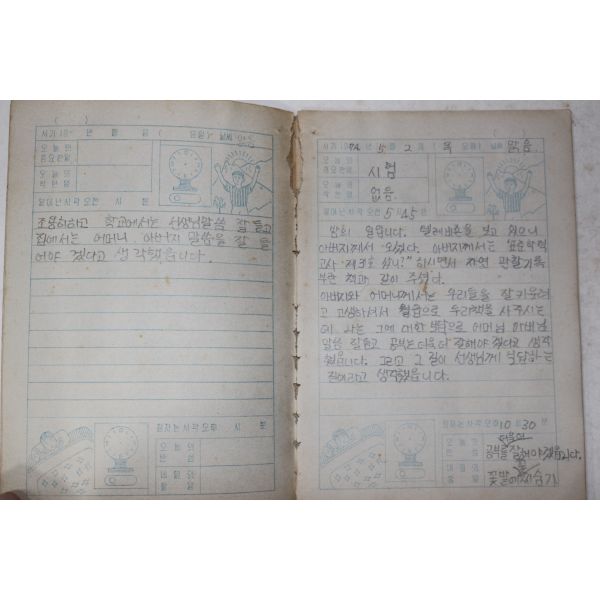 서기 19 년 월 일 ( 요일) 날씨 맑음
오늘의 중요한 일
오늘의 착한일
일어난시각 오전 시 분
조용히하고 학교에서는 선생님말씀 잘 듣고
집에서는 어머니 아버지 말씀을 잘 들
어야 겠다고 생각했읍니다.
잠자는시각 오후 시 분
오늘의 반성
내일의 할일
서기 1974 년 5 월 2 일 목 요일 날씨 맑음
오늘의 중요한일 시험
오늘의 착한일 없음
일어난시각 오전 5시 45분
밤의 일입니다. 텔레비죤을 보고 있으니
아버지께서 오셨다. 아버지께서는 "표준학력
고사 제3호 있니?" 하시면서 자연 관찰기록
부란 책과 같이 주셨다.
아버지와 어머니께서는 우리들을 잘 키우려
고 고생하셔서 월급으로 우리책을 사주시는
데 나는 그에 대한 보답으로 어머님 아버님
말씀 잘듣고 공부는 더욱더 잘해야 겠다고 생각
했읍니다. 그리고 그 길이 선생님께 보답하는
길이라고 생각했읍니다.
잠자는시각 오후 10시 30분
오늘의 반성 공부를 잘해야 겠읍니다.
내일의 할일 꽃밭에 씨 심기